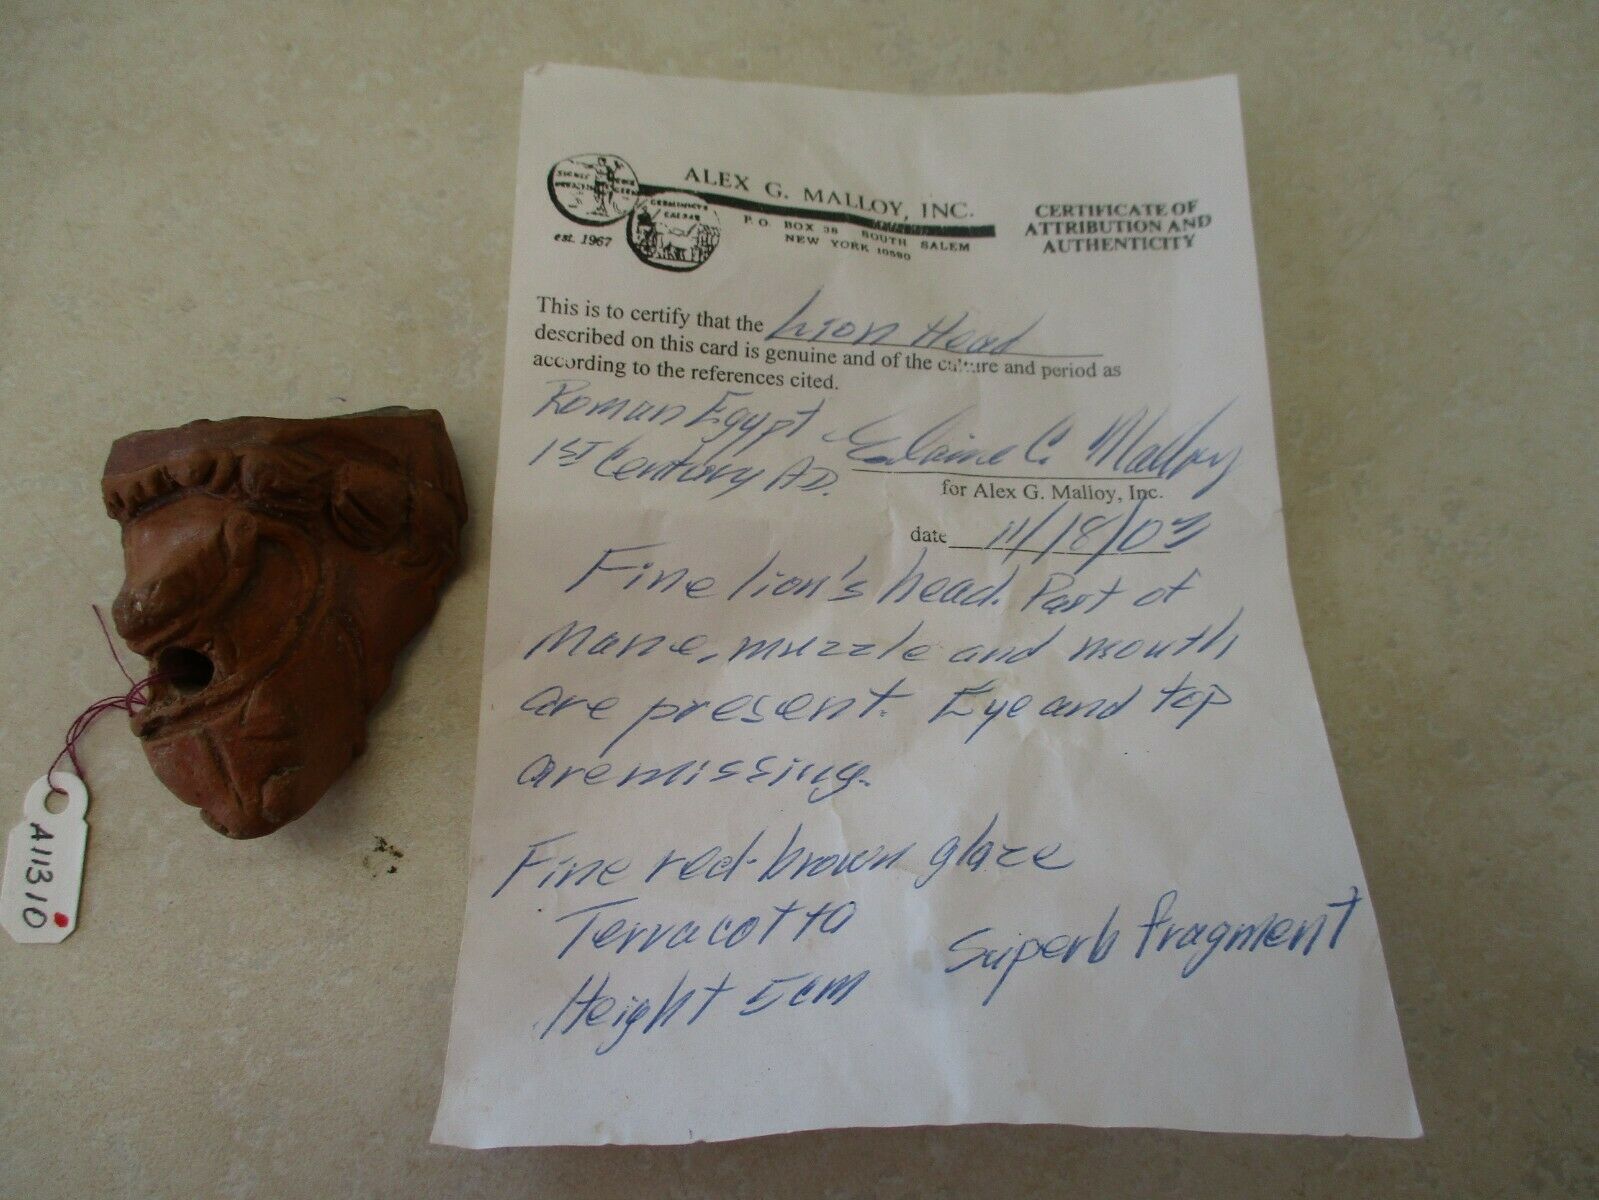 ALEX G. MALLOY, INC.
P.O. BOX 38 SOUTH SALEM
NEW YORK 10590
est. 1967
GERMANICVS
CAESAR
CERTIFICATE OF
ATTRIBUTION AND
AUTHENTICITY
This is to certify that the Lion Head
described on this card is genuine and of the culture and period as
according to the references cited.
Roman Egypt
1st Century AD.
Elaine C. Malloy
for Alex G. Malloy, Inc.
date 11/18/03
Fine lion's head. Part of
Mane, muzzle and mouth
are present. Eye and top
are missing.
Fine red-brown glaze
Terracotta
Height 5cm
Superb fragment
A11310